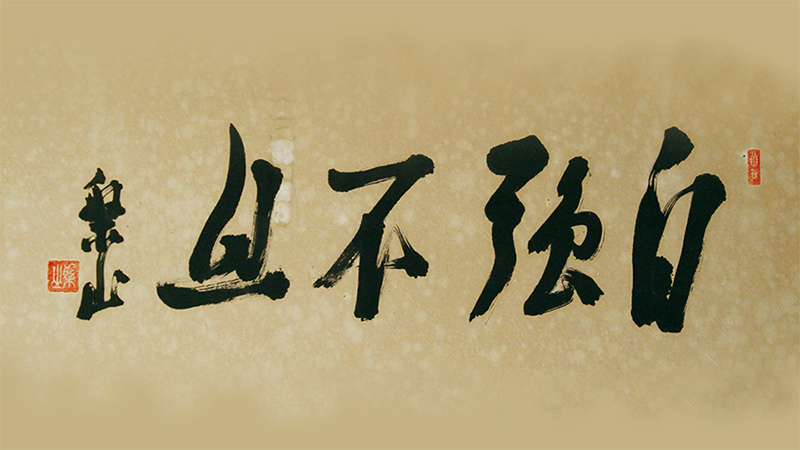 自強不息
山